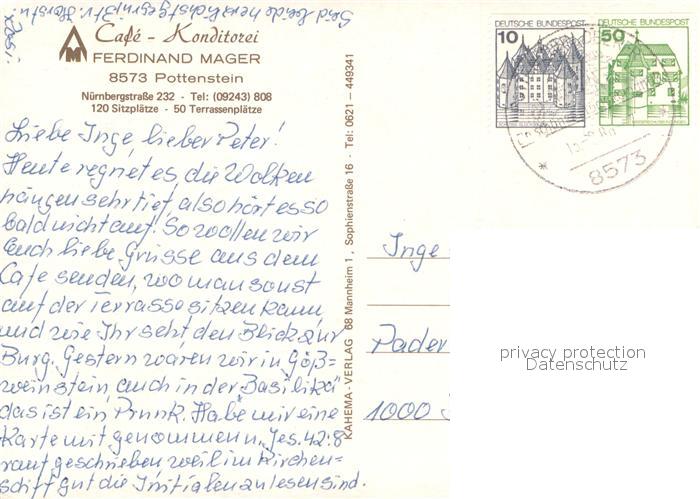 Café - Konditorei
FERDINAND MAGER
8573 Pottenstein
Nürnbergstraße 232 · Tel: (09243) 808
120 Sitzplätze · 50 Terrassenplätze
Liebe Inge, lieber Peter!
Heute regnet es die Wolken
hängen sehr tief also hört es so
bald nicht auf. So wollen wir
Euch liebe Grüsse aus dem
Cafe senden, wo man sonst
auf der Terrasse sitzen kann
und wie Ihr seht den Blick zur
Burg. Gestern waren wir in Göß=
weinstein, auch in der "Basilika"
das ist ein Prunk. Habe mir eine
Karte mit genommen u. "Jes. 42:8
rauf geschrieben weil im Kirchen=
schiff gut die Initialen zu lesen sind.
Rosi
KAHEMA-VERLAG 68 Mannheim 1, Sophienstraße 16 · Tel: 0621 - 449341
DEUTSCHE BUNDESPOST
10
DEUTSCHE BUNDESPOST
50
8573
Inge
Pader
1000
privacy protection
Datenschutz